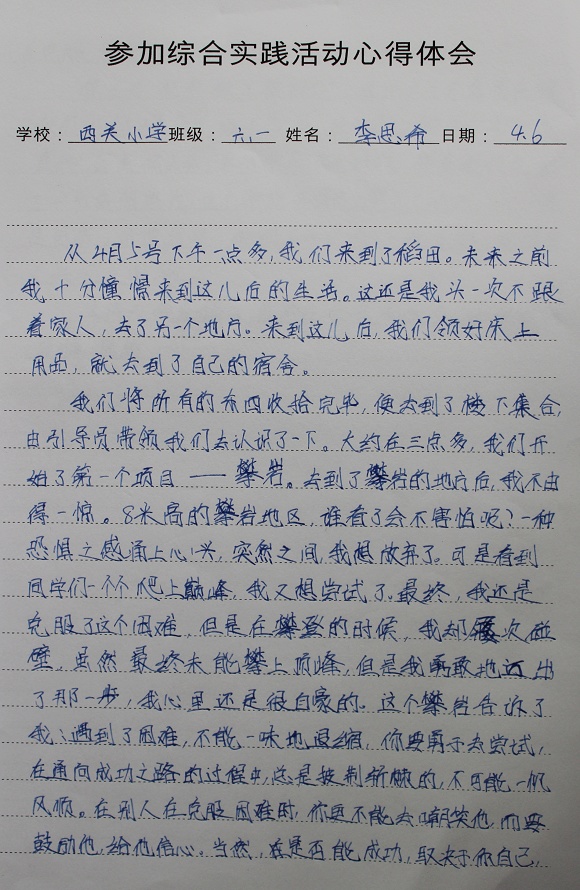 参加综合实践活动心得体会
学校：西关小学班级：六.一 姓名：李思希 日期：4.6
从4月5号下午一点多,我们来到了稻田。未来之前
我十分憧憬来到这儿后的生活。这还是我头一次不跟
着家人，去了另一个地方。来到这儿后,我们领好床上
用品，就去到了自己的宿舍。
我们将所有的东西收拾完毕，便去到了楼下集合,
由引导员带领我们去认识了一下。大约在三点多,我们开
始了第一个项目——攀岩。去到了攀岩的地方后,我不由
得一惊。8米高的攀岩地区，谁看了会不害怕呢?一种
恐惧之感涌上心头，突然之间,我想放弃了。可是看到
同学们一个个爬上巅峰，我又想尝试了。最终，我还是
克服了这个困难，但是在攀登的时候，我却屡次碰
壁，虽然最终未能攀上顶峰，但是我勇敢地迈出
了那一步，我心里还是很自豪的。这个攀岩告诉了
我：遇到了困难，不能一味地退缩，你要勇于去尝试，
在通向成功之路的过程中,总是披荆斩棘的,不可能一帆
风顺。在别人在克服困难时,你更不能去嘲笑他,而要
鼓励他,给他信心。当然，在是否能成功，取决于你自己,